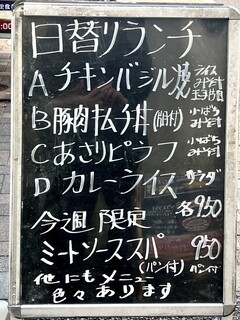 日替りランチ
A チキンバジル焼 ライス みそ汁
B 豚肉キムチ丼 小ばち みそ汁
C あさりピラフ 小ばち みそ汁
D カレーライス サラダ
各950
今週限定
ミートソーススパ 950
(パン付) パン付
他にもメニュー
色々あります